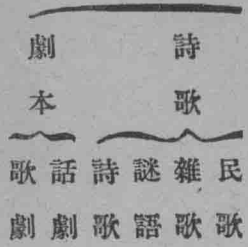 詩歌
劇本
民歌
雜歌
謎語
詩歌
話劇
歌劇